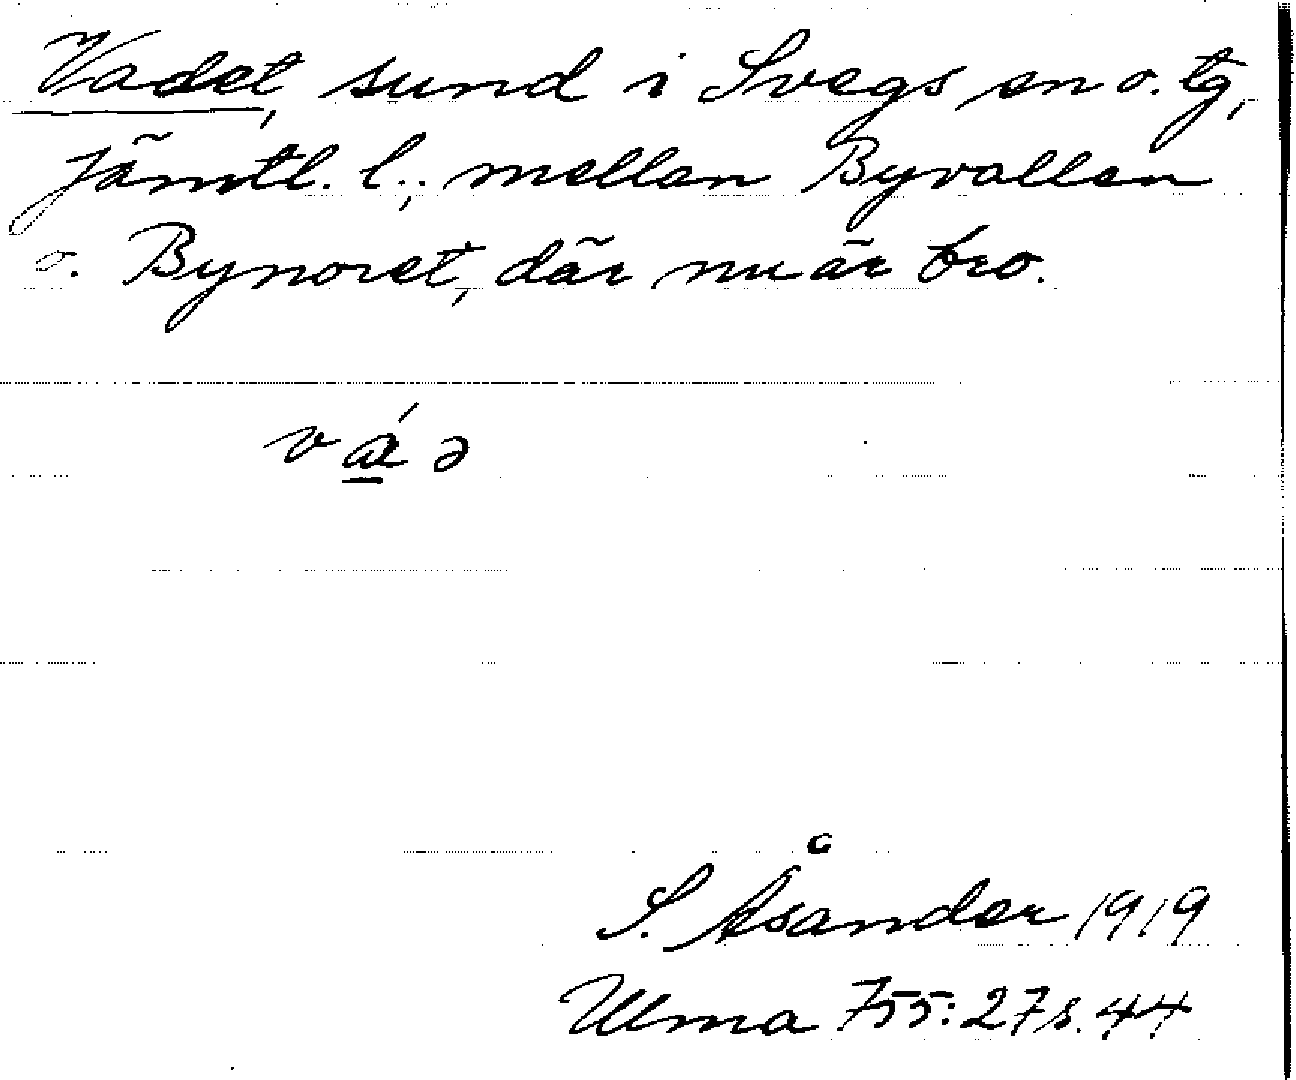 Vadet, sund i Svegs sn o. tg,
Jämtl. l., mellan Byvallen
o. Bynoret, där nu är bro.
vá ə
S. Åsander 1919
Ulma 755:27 s. 44